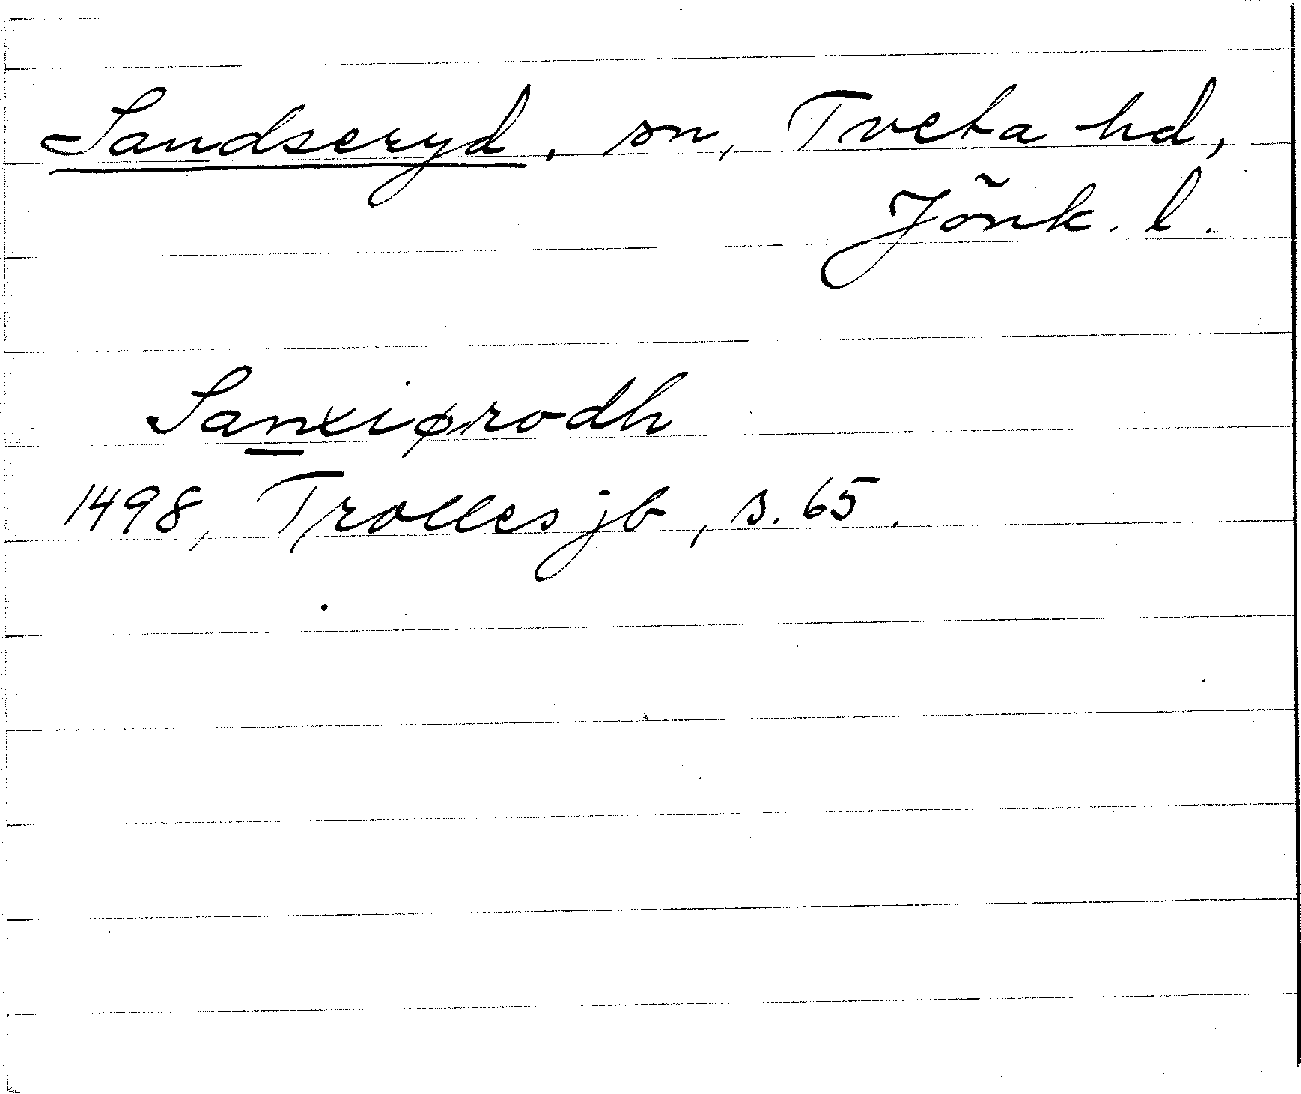 Sandseryd, sn, Tveta hd,
Jönk. l.
Sanxiørodh
1498, Trolles jb, s. 65.